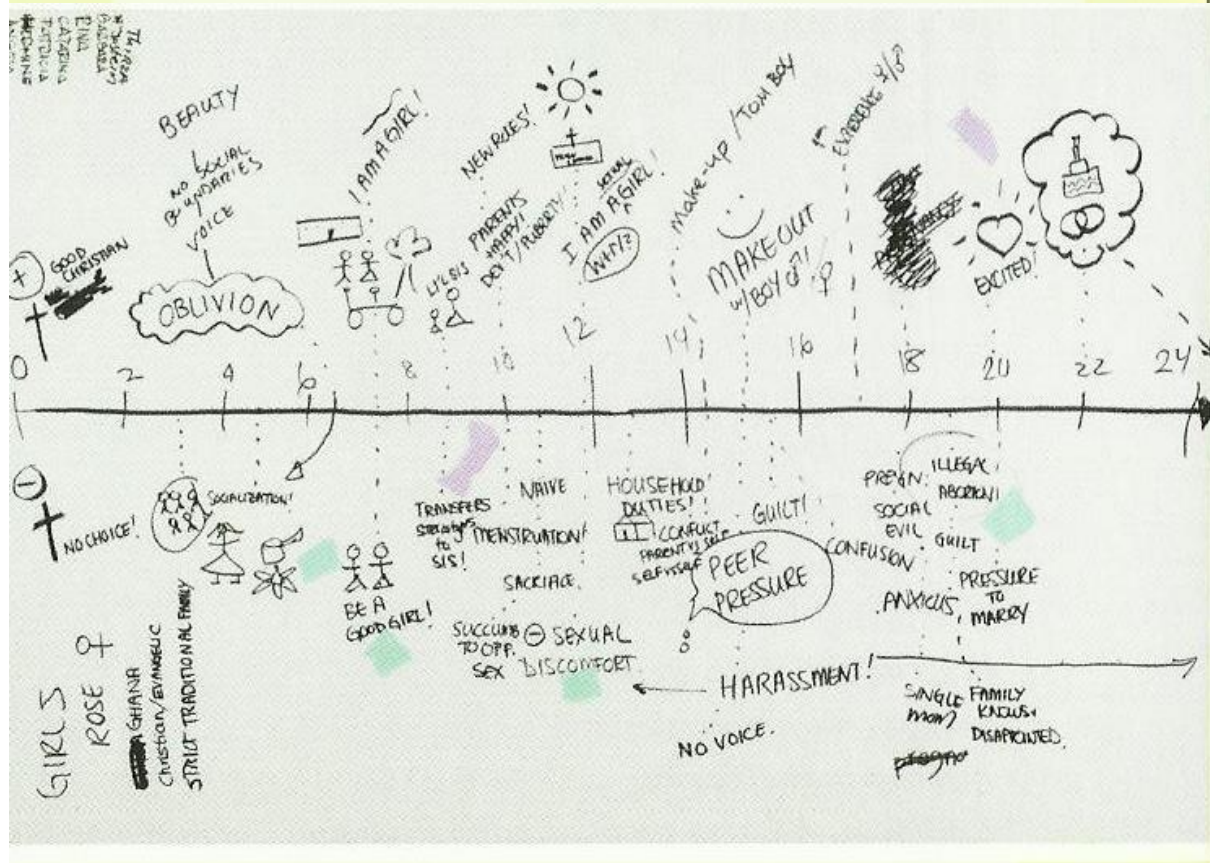 BARBARA
RINA
CATARINA
PATRICIA
BEAUTY
NO SOCIAL
BOUNDARIES
VOICE
OBLIVION
+
GOOD
CHRISTIAN
I AM A GIRL!
NEW RULES!
LI'L SIS
PARENTS
HAPPY!
DEV'T/PUBERTY!
SEXUAL
I AM A GIRL!
WHY?
Make-up / TOM BOY
MAKEOUT
W/BOY ♂!
♀
EXPERIENCE ♀/♂
EXCITED!
0 2 4 6 8 10 12 14 16 18 20 22 24
−
NO CHOICE!
SOCIALIZATION!
BE A
GOOD GIRL!
TRANSFERS
to
SIS!
NAIVE
MENSTRUATION!
SACRIFICE
SUCCUMB
TO OPP.
SEX
− SEXUAL
DISCOMFORT
HOUSEHOLD
DUTIES!
CONFLICT
PARENT VS SELF
SELF VS SELF
PEER
PRESSURE
GUILT!
CONFUSION
HARASSMENT!
NO VOICE.
PREGN.
SOCIAL
EVIL
ANXIOUS
ILLEGAL
ABORTION!
GUILT
PRESSURE
TO
MARRY
SINGLE
MOM
FAMILY
KNOWS.
DISAPPOINTED.
GIRLS
ROSE ♀
GHANA
Christian/EVANGELIC
STRICT TRADITIONAL FAMILY